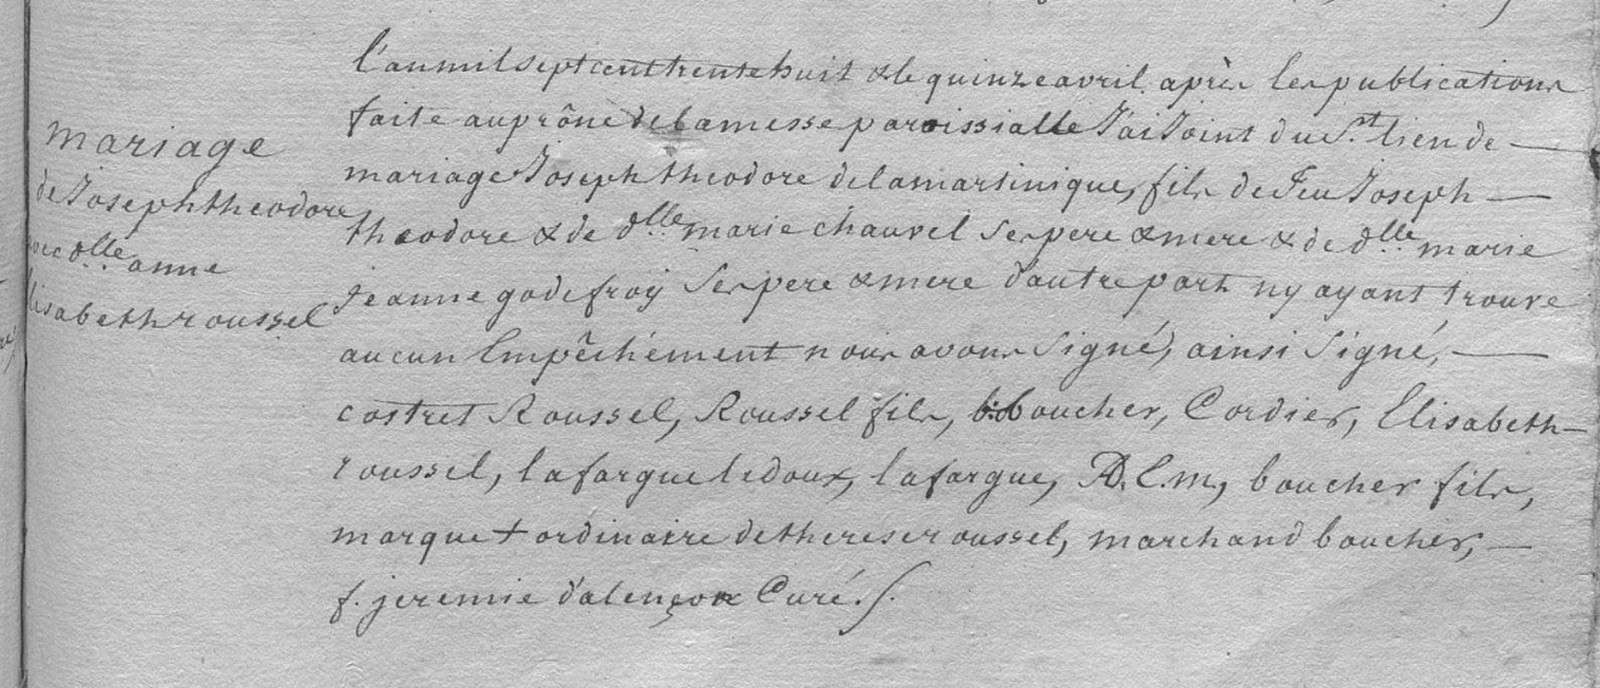 mariage
de Joseph theodore
avec dlle anne
elisabeth roussel
l'an mil sept cent trente huit & le quinze avril après les publications
faite au prône de la messe paroissialle J'ai Joint du St. lien de
mariage Joseph theodore de la martinique, fils de Feu Joseph
theodore & de dlle marie chauvel ses pere & mere & de dlle marie
Jeanne godefroÿ ses pere & mere d'autre part ny ayant trouve
aucun Empêchement nous avons Signé, ainsi Signé,
costret Roussel, Roussel fils, boucher, Cordier, Elisabeth
roussel, lafargue ledoux, lafargue, AD. C. m, boucher fils,
marque + ordinaire de therese roussel, marchand boucher,
f. jeremie d'alençon Curé.